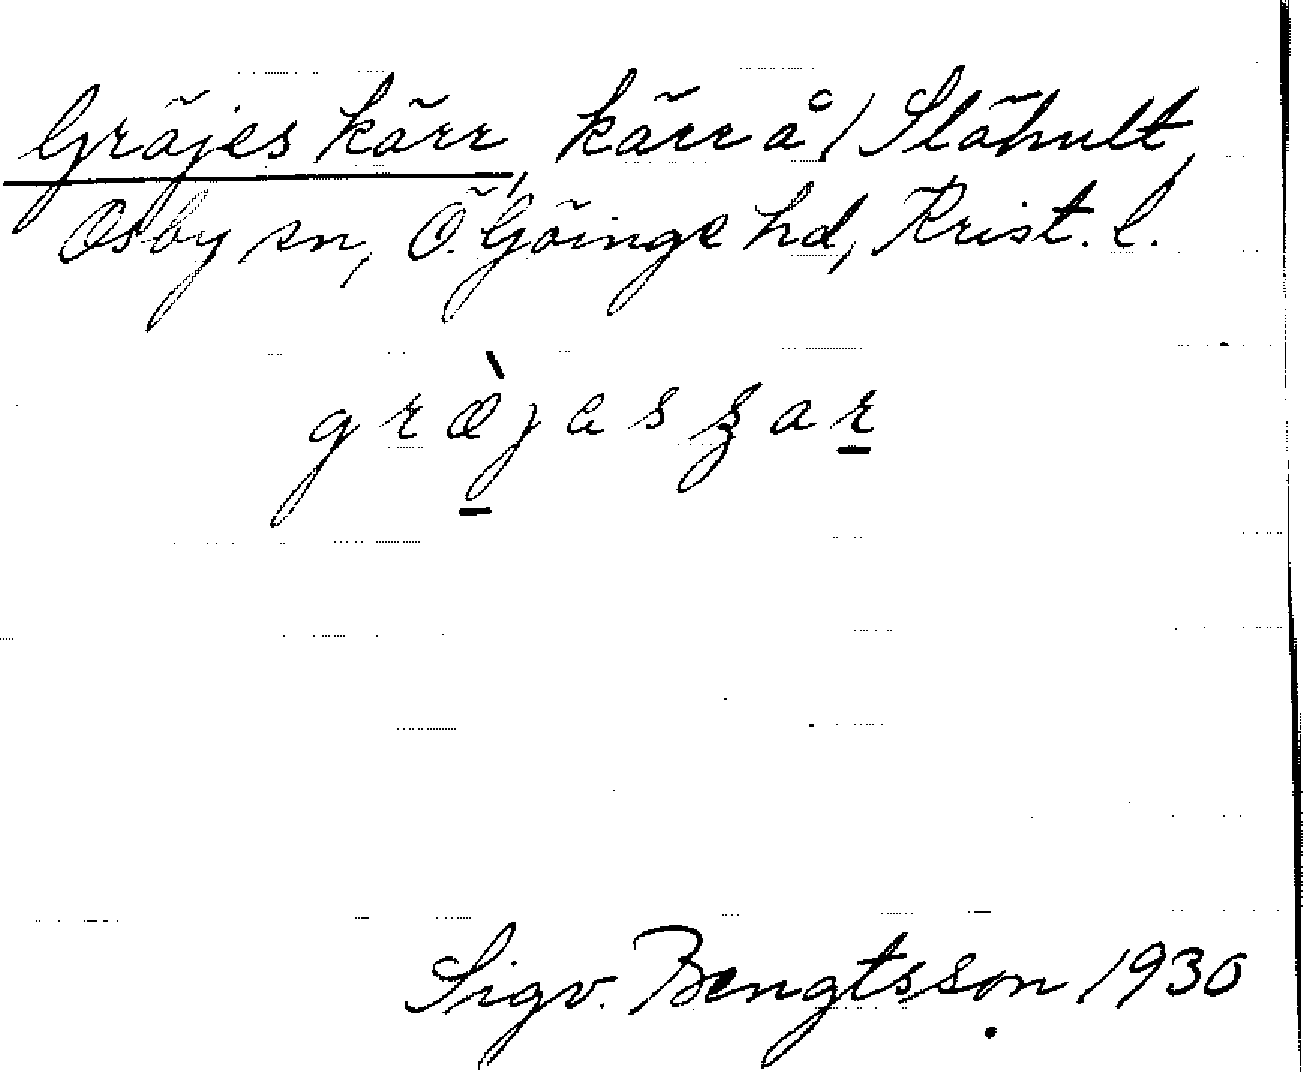 Gräjes kärr, kärr å / Slähult,
Osby sn, Ö. Göinge hd, Krist. l.
græ̀jas
Sigv. Bengtsson 1930